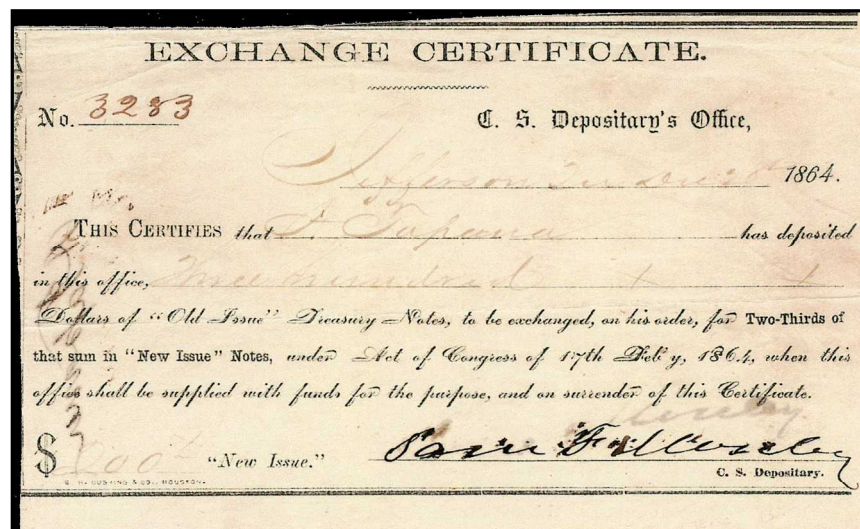 EXCHANGE CERTIFICATE.
No. 3283
C. S. Depositary's Office,
Jefferson 1864.
THIS CERTIFIES that has deposited
in this office, Three hundred
Dollars of "Old Issue" Treasury Notes, to be exchanged, on his order, for Two-Thirds of
that sum in "New Issue" Notes, under Act of Congress of 17th Feb'y, 1864, when this
office shall be supplied with funds for the purpose, and on surrender of this Certificate.
$ 200 "New Issue."
C. S. Depositary.
E. H. CUSHING & CO., HOUSTON.